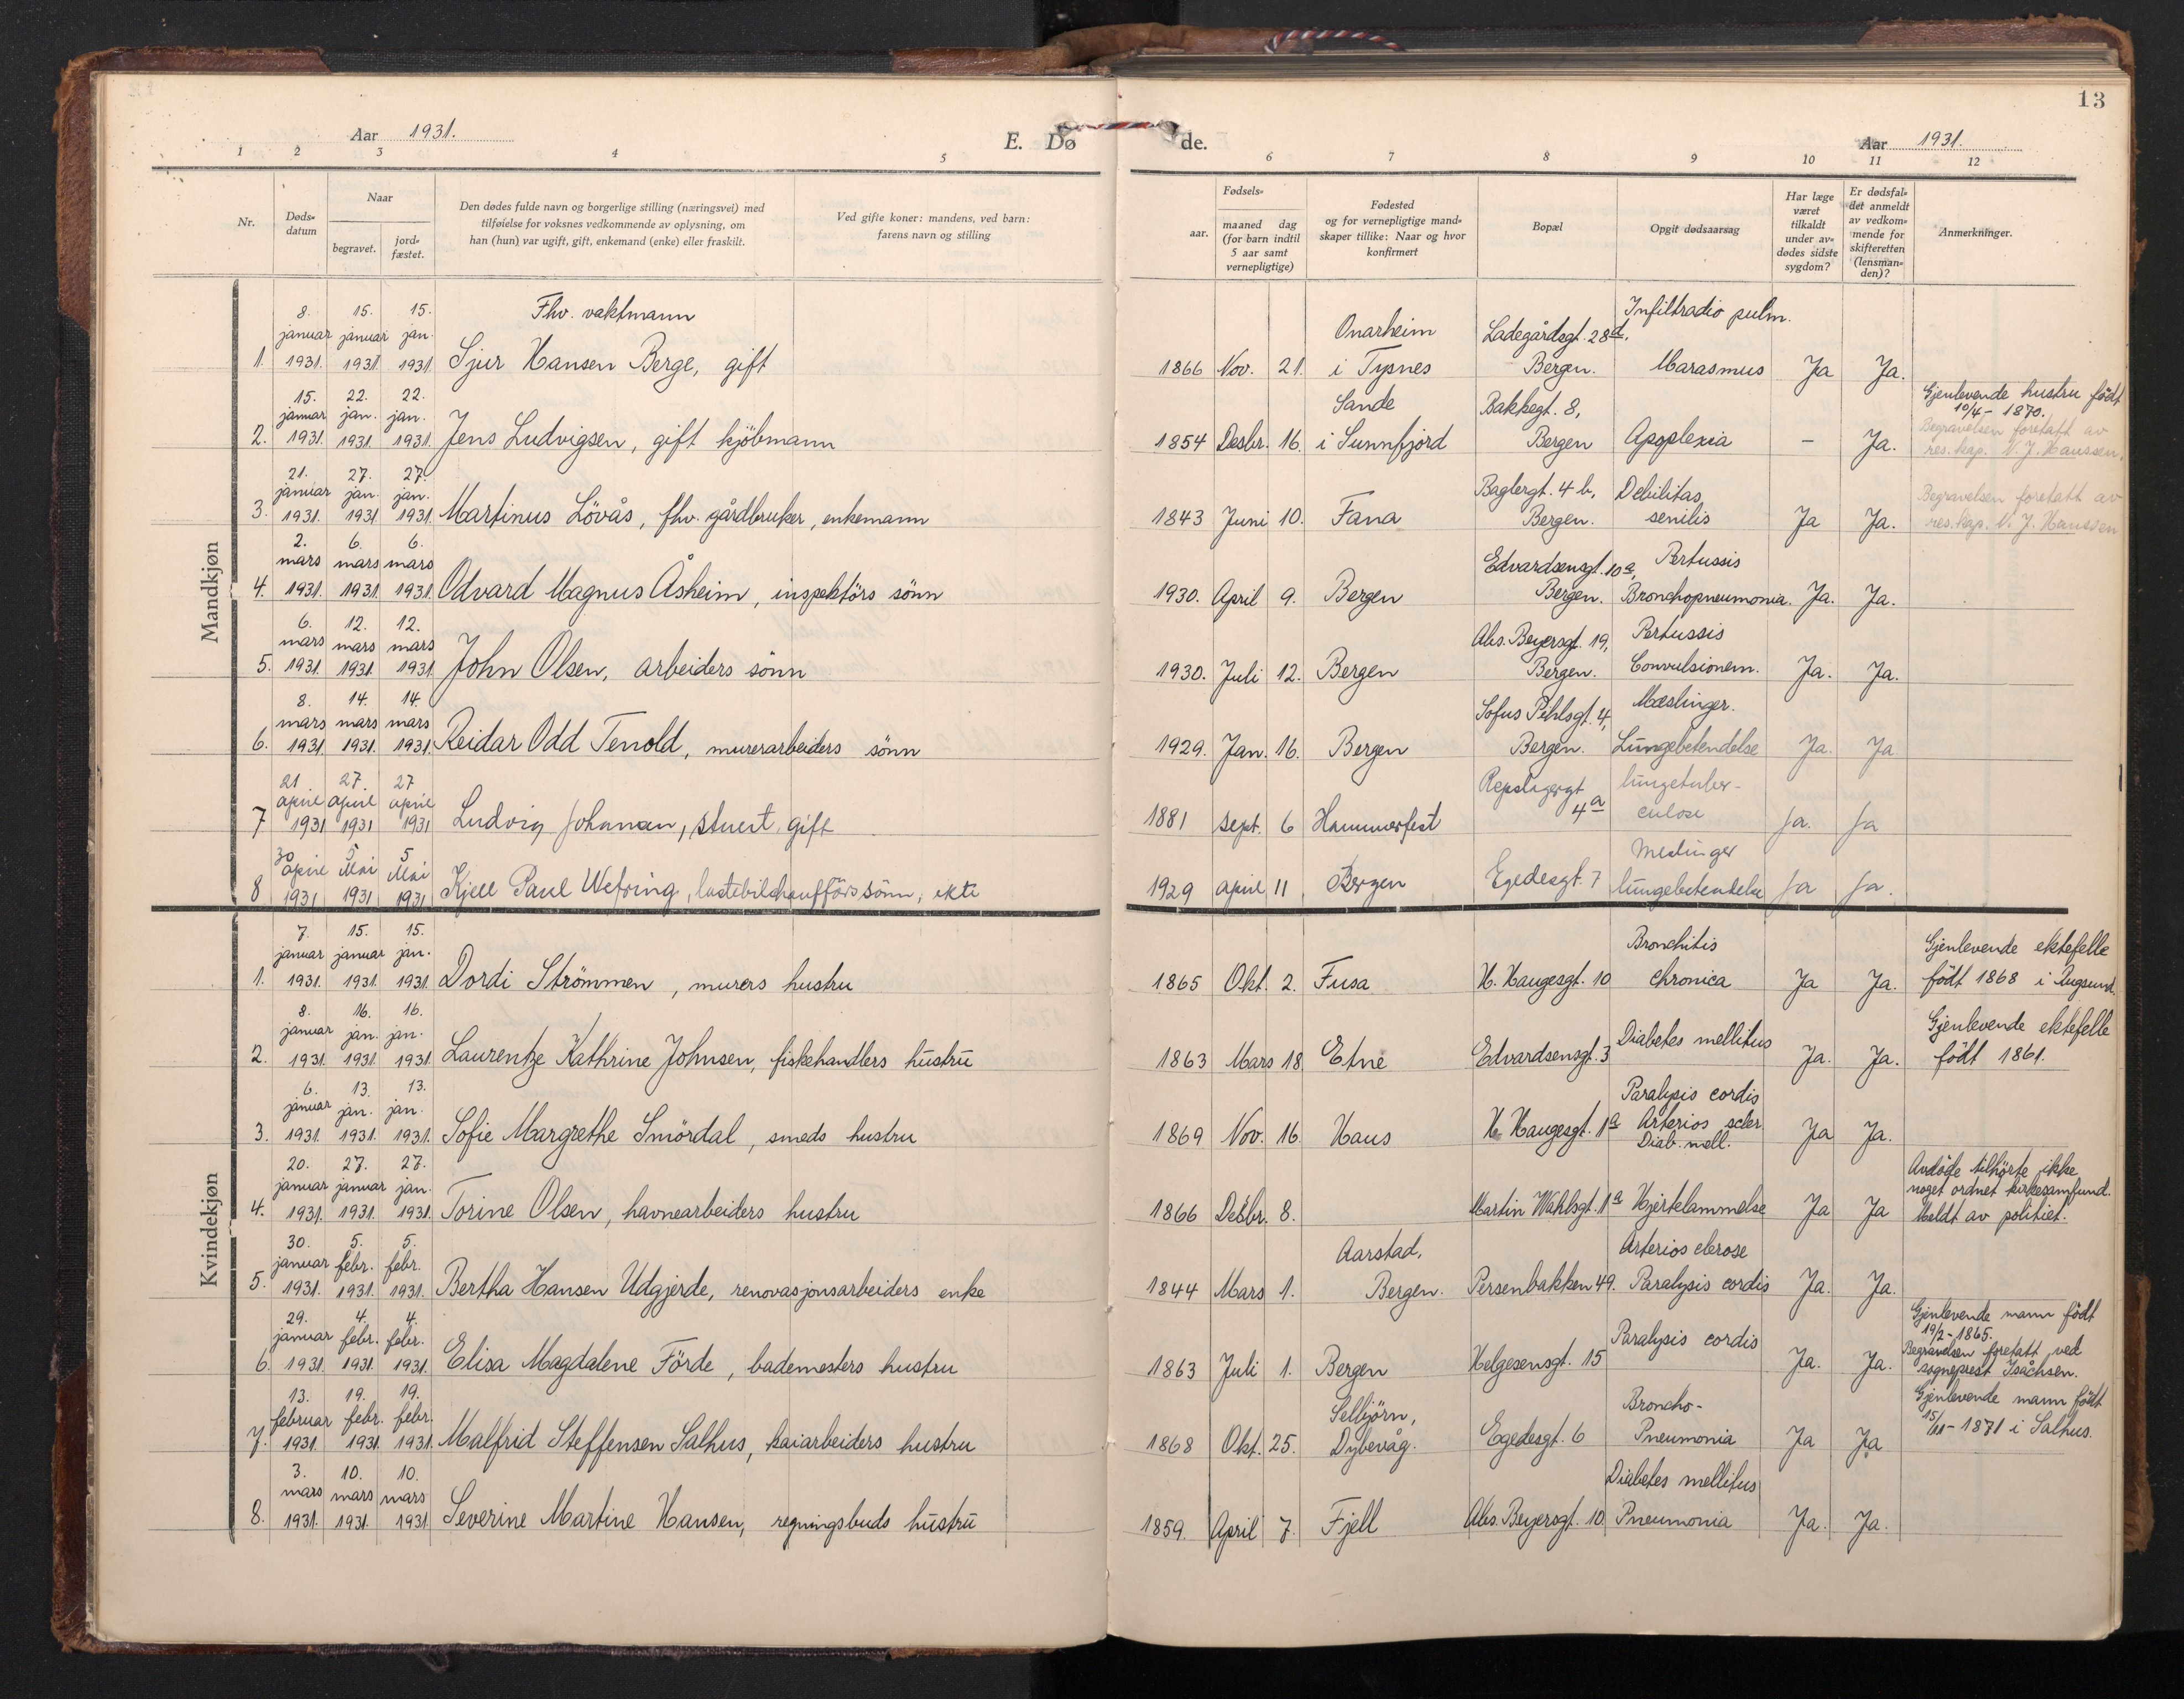 13
Aar 1931.
E. Døde.
Aar 1931.
1 2 3 4 5 6 7 8 9 10 11 12
Nr.
Døds-
datum
Naar
begravet.
jord-
fæstet.
Den dødes fulde navn og borgerlige stilling (næringsvei) med
tilføielse for voksnes vedkommende av oplysning, om
han (hun) var ugift, gift, enkemand (enke) eller fraskilt.
Ved gifte koner: mandens, ved barn:
farens navn og stilling
Fødsels-
aar.
maaned dag
(for barn indtil
5 aar samt
vernepligtige)
Fødested
og for vernepligtige mand-
skaper tillike: Naar og hvor
konfirmert
Bopæl
Opgit dødsaarsag
Har læge
været
tilkaldt
under av-
dødes sidste
sygdom?
Er dødsfal-
det anmeldt
av vedkom-
mende for
skifteretten
(lensman-
den)?
Anmerkninger.
Mandkjøn
8. 15. 15. Fhv. vaktmann Infiltradio pulm.
januar januar jan. Onarheim Ladegårdsgt. 28d,
1. 1931. 1931. 1931. Sjur Hansen Berge, gift 1866 Nov. 21. i Tysnes Bergen. Marasmus Ja Ja.
15. 22. 22. Sande Bakkegt. 8, Gjenlevende hustru født
januar jan. jan. 10/4 - 1870.
2. 1931. 1931. 1931. Jens Ludvigsen, gift kjöbmann 1854 Desbr. 16. i Sunnfjord Bergen Apoplexia - Ja. Begravelsen foretatt av
res. kap. N. J. Hanssen.
21. 27. 27. Baglergt. 4 b, Debilitas Begravelsen foretatt av
januar jan. jan.
3. 1931. 1931. 1931. Martinus Lövås, fhv. gårdbruker, enkemann 1843 Juni 10. Fana Bergen. senilis Ja Ja. res. kap. N. J. Hanssen
2. 6. 6. Edvardsensgt. 10a, Pertussis
mars mars mars
4. 1931. 1931. 1931. Odvard Magnus Åsheim, inspektörs sönn 1930. April 9. Bergen Bergen. Bronchopneumonia. Ja. Ja.
6. 12. 12. Abs. Beyersgt. 19, Pertussis
mars mars mars
5. 1931. 1931. 1931. John Olsen, arbeiders sönn 1930. Juli 12. Bergen Bergen. Convulsionem. Ja. Ja.
8. 14. 14. Sofus Pihlsgt. 4, Mæslinger.
mars mars mars
6. 1931. 1931. 1931. Reidar Odd Tenold, murerarbeiders sönn 1929. Jan. 16. Bergen Bergen. Lungebetendelse Ja. Ja
21. 27. 27 lungetuber-
april april april
7 1931 1931 1931 Ludvig Johansen, stuert, gift 1881 sept. 6 Hammerfest 4a culose Ja. Ja
30 5 5 meslinger
april Mai Mai
8 1931 1931 1931 Kjell Paul Wefring, lastebilchaufförs sönn, ekte 1929 april 11 Bergen Egedesgt. 7 lungebetendelse Ja Ja.
Kvindekjøn
7. 15. 15. Bronchitis Gjenlevende ektefelle
januar januar jan.
1. 1931. 1931. 1931. Dordi Strömmen, murers hustru 1865 Okt. 2. Fusa H. Haugesgt. 10 chronica Ja Ja. födt 1868 i
8. 16. 16. Diabetes mellitus Gjenlevende ektefelle
januar jan. jan.
2. 1931. 1931. 1931. Laurentze Kathrine Johnsen, fiskehandlers hustru 1863 Mars 18 Etne Edvardsensgt. 3 Ja. Ja. födt 1861.
6. 13. 13. Paralysis cordis
januar jan. jan.
3. 1931. 1931. 1931. Sofie Margrethe Smördal, smeds hustru 1869 Nov. 16. Haus H. Haugesgt. 1a Arterios scler Ja Ja.
Diab. mell.
20. 27. 27. Avdöde tilhörte ikke
januar januar jan. noget ordnet kirkesamfund.
4. 1931. 1931. 1931. Torine Olsen, havnearbeiders hustru 1866 Desbr. 8. Martin Wahlsgt. 1a Hjertelammelse Ja Ja Meldt av politiet.
30. 5. 5. Aarstad, Arterios clerose
januar febr. febr.
5. 1931. 1931. 1931. Bertha Hansen Udgjerde, renovasjonsarbeiders enke 1844 Mars 1. Bergen. Persenbakken 49. Paralysis cordis Ja. Ja.
29. 4. 4. Paralysis cordis Gjenlevende mann födt
januar febr. febr. 19/2 - 1865.
6. 1931. 1931. 1931. Elisa Magdalene Förde, bademesters hustru 1863 Juli 1. Bergen Helgesensgt. 15 Ja. Ja. Begravelsen foretatt ved
sogneprest Isachsen.
13. 19. 19. Selbjörn, Broncho- Gjenlevende mann födt
februar febr. febr.
7. 1931. 1931. 1931. Malfrid Steffensen Salhus, kaiarbeiders hustru 1868 Okt. 25. Dybevåg. Egedesgt. 6 Pneumonia Ja Ja 15/11 - 1871 i Salhus.
3. 10. 10. Diabetes mellitus
mars mars mars
8. 1931. 1931. 1931. Severine Martine Hansen, regningsbuds hustru 1859. April 7. Fjell Abs. Beyersgt. 10 Pneumonia Ja. Ja.